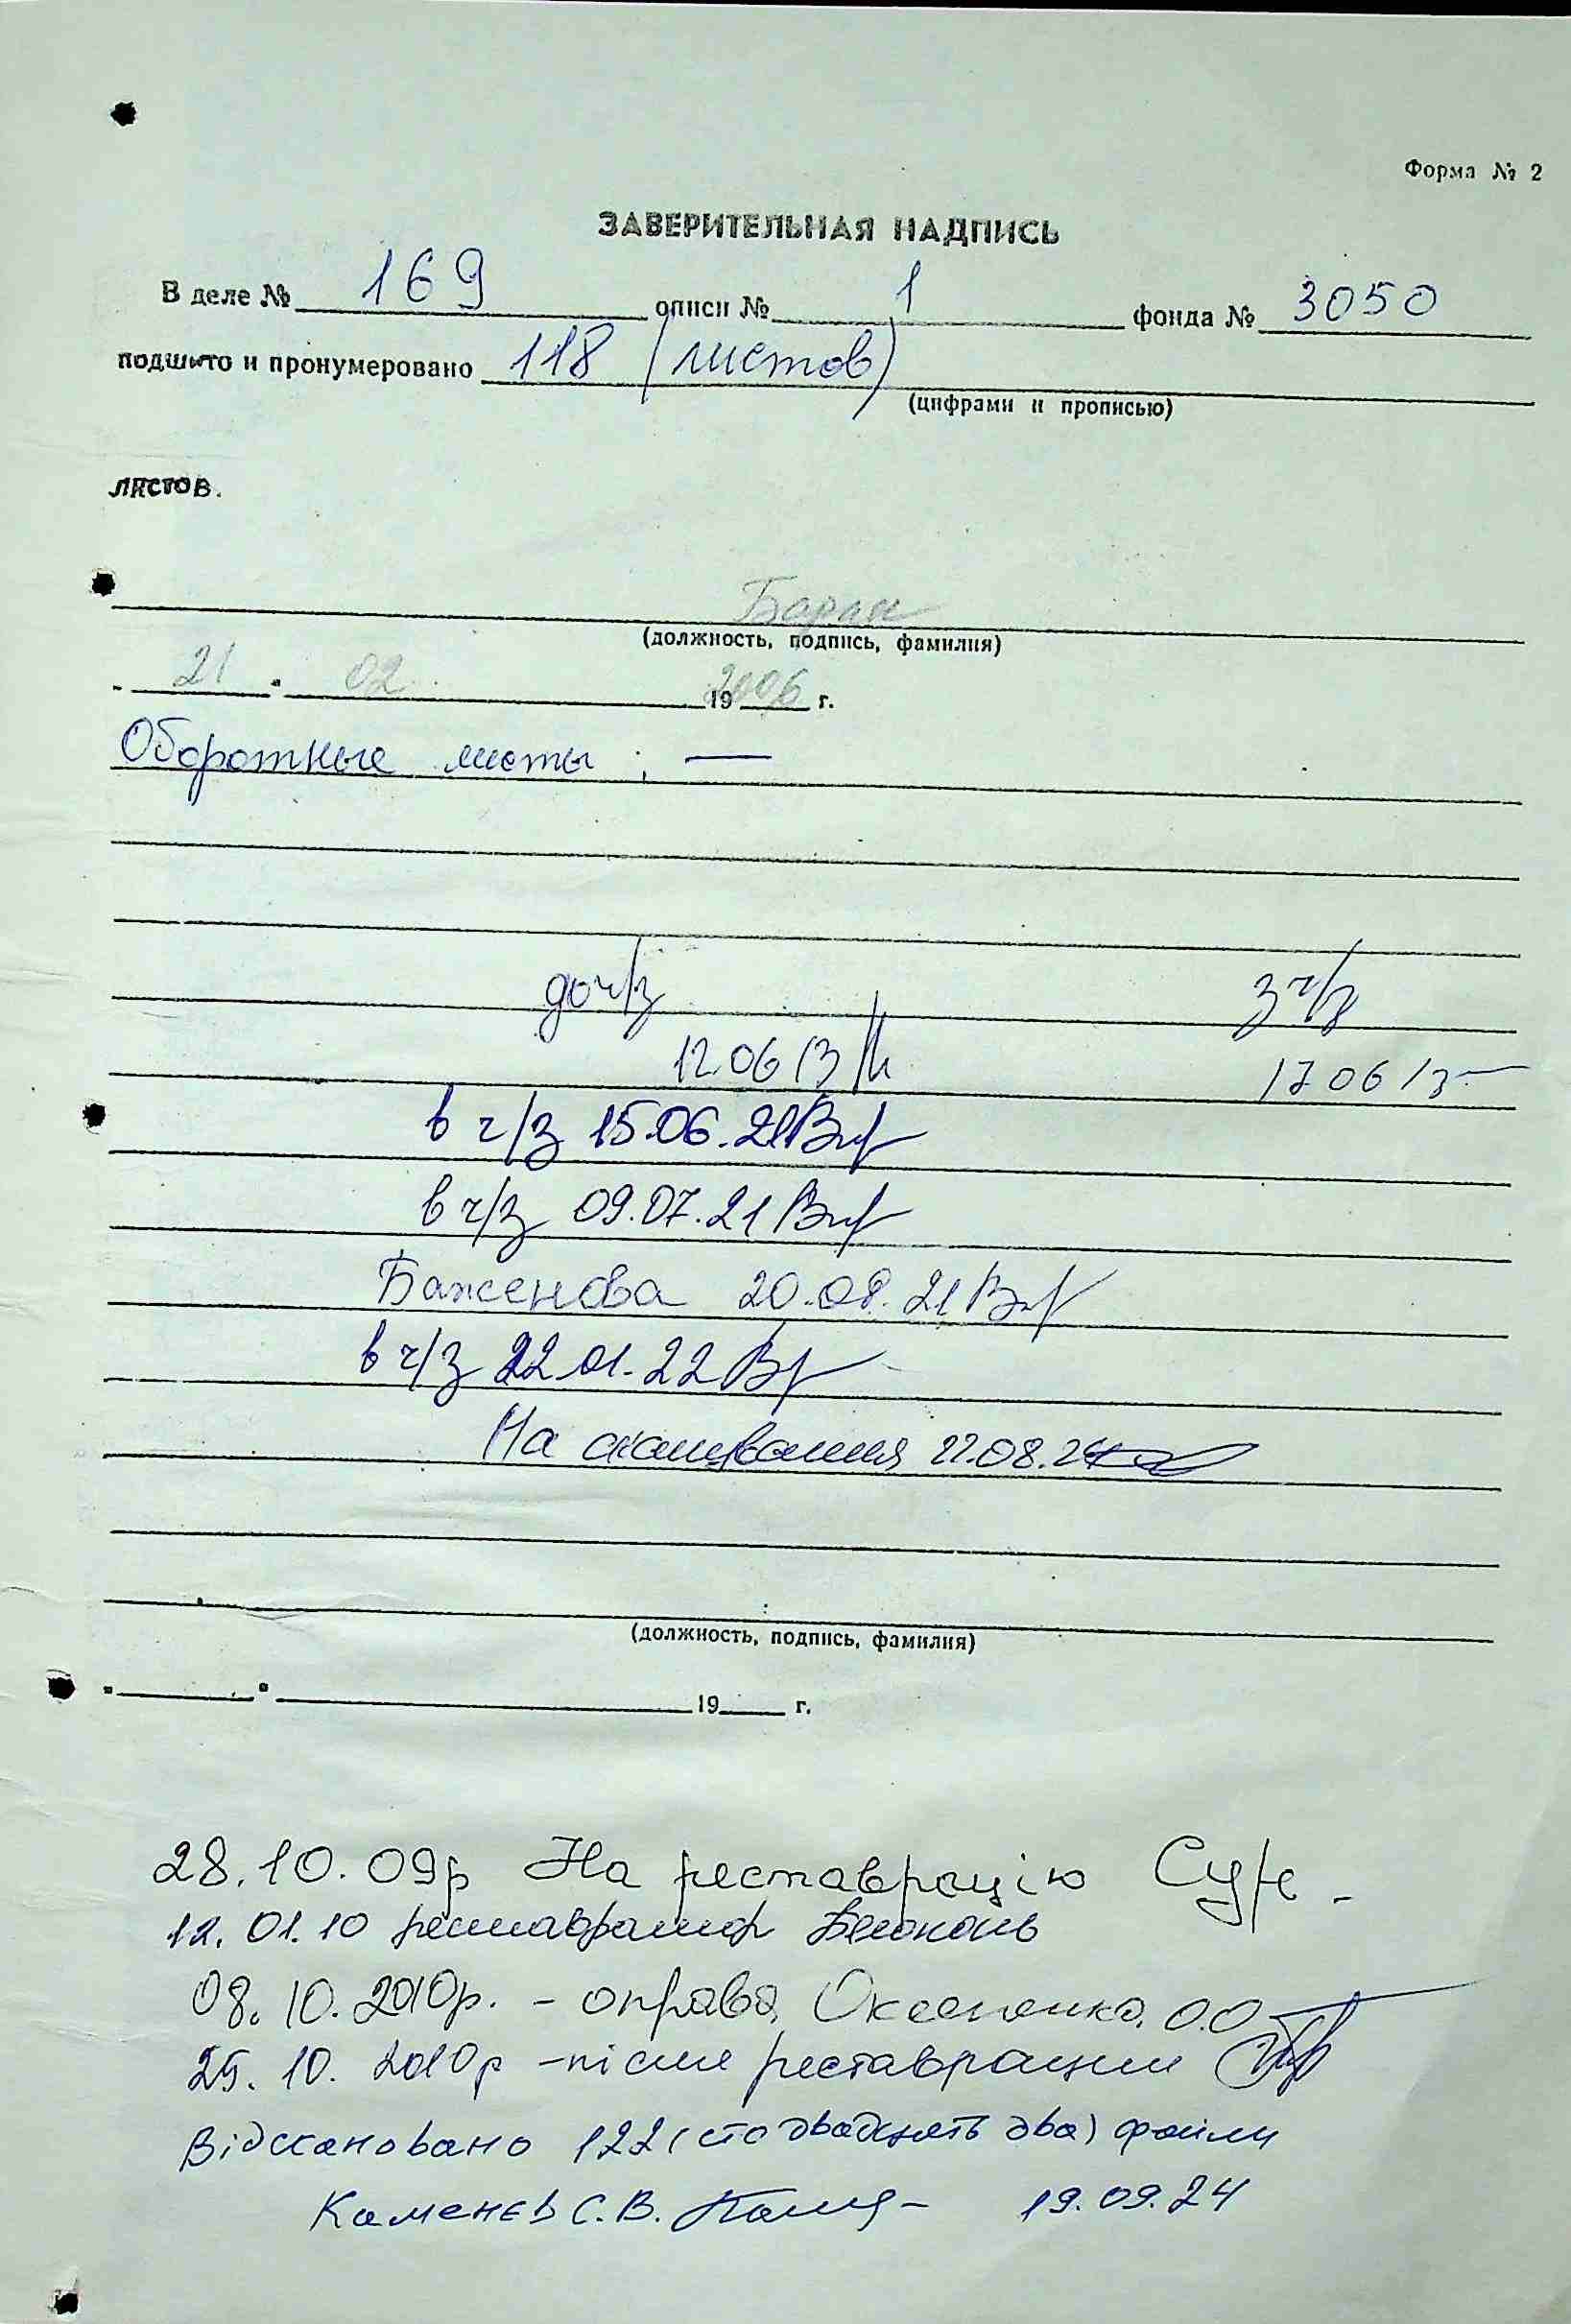 Форма № 2
ЗАВЕРИТЕЛЬНАЯ НАДПИСЬ
В деле № 169 описи № 1 фонда № 3050
подшито и пронумеровано 118 (листов)
(цифрами и прописью)
листов.
Баран
(должность, подпись, фамилия)
21 02 2006 19 г.
Оборотные листы: —
до ч/з з ч/з
12.06 13 17 06 13
в ч/з 15.06.21
в ч/з 09.07.21
Баженова 20.08.21
в ч/з 22.01.22
На сканування 22.08.24
(должность, подпись, фамилия)
19 г.
28.10.09р На реставрацію
12.01.10 реставратор
08.10.2010р. - оправа, О.О.
25.10.2010р - після реставрации
Відскановано 122 (сто двадцять два) файли
Каменєв С.В. 19.09.24